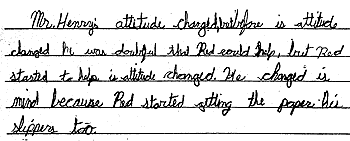 Mr. Henry's attitude changed, before is attitude
changed he was doubtful that Red could help, but Red
started to help is attitude changed. He changed is
mind because Red started getting the paper his
slippers too.